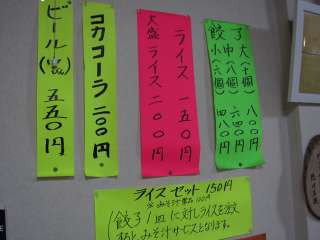 餃子
大(十個)八〇〇円
中(八個)六四〇円
小(六個)四八〇円
ライス 一五〇円
大盛ライス 二〇〇円
コカコーラ 二〇〇円
ビール(中びん) 五五〇円
ライスセット 150円
※みそ汁単品 100円
(餃子1皿に対しライスを注文
するとみそ汁サービスとなります。